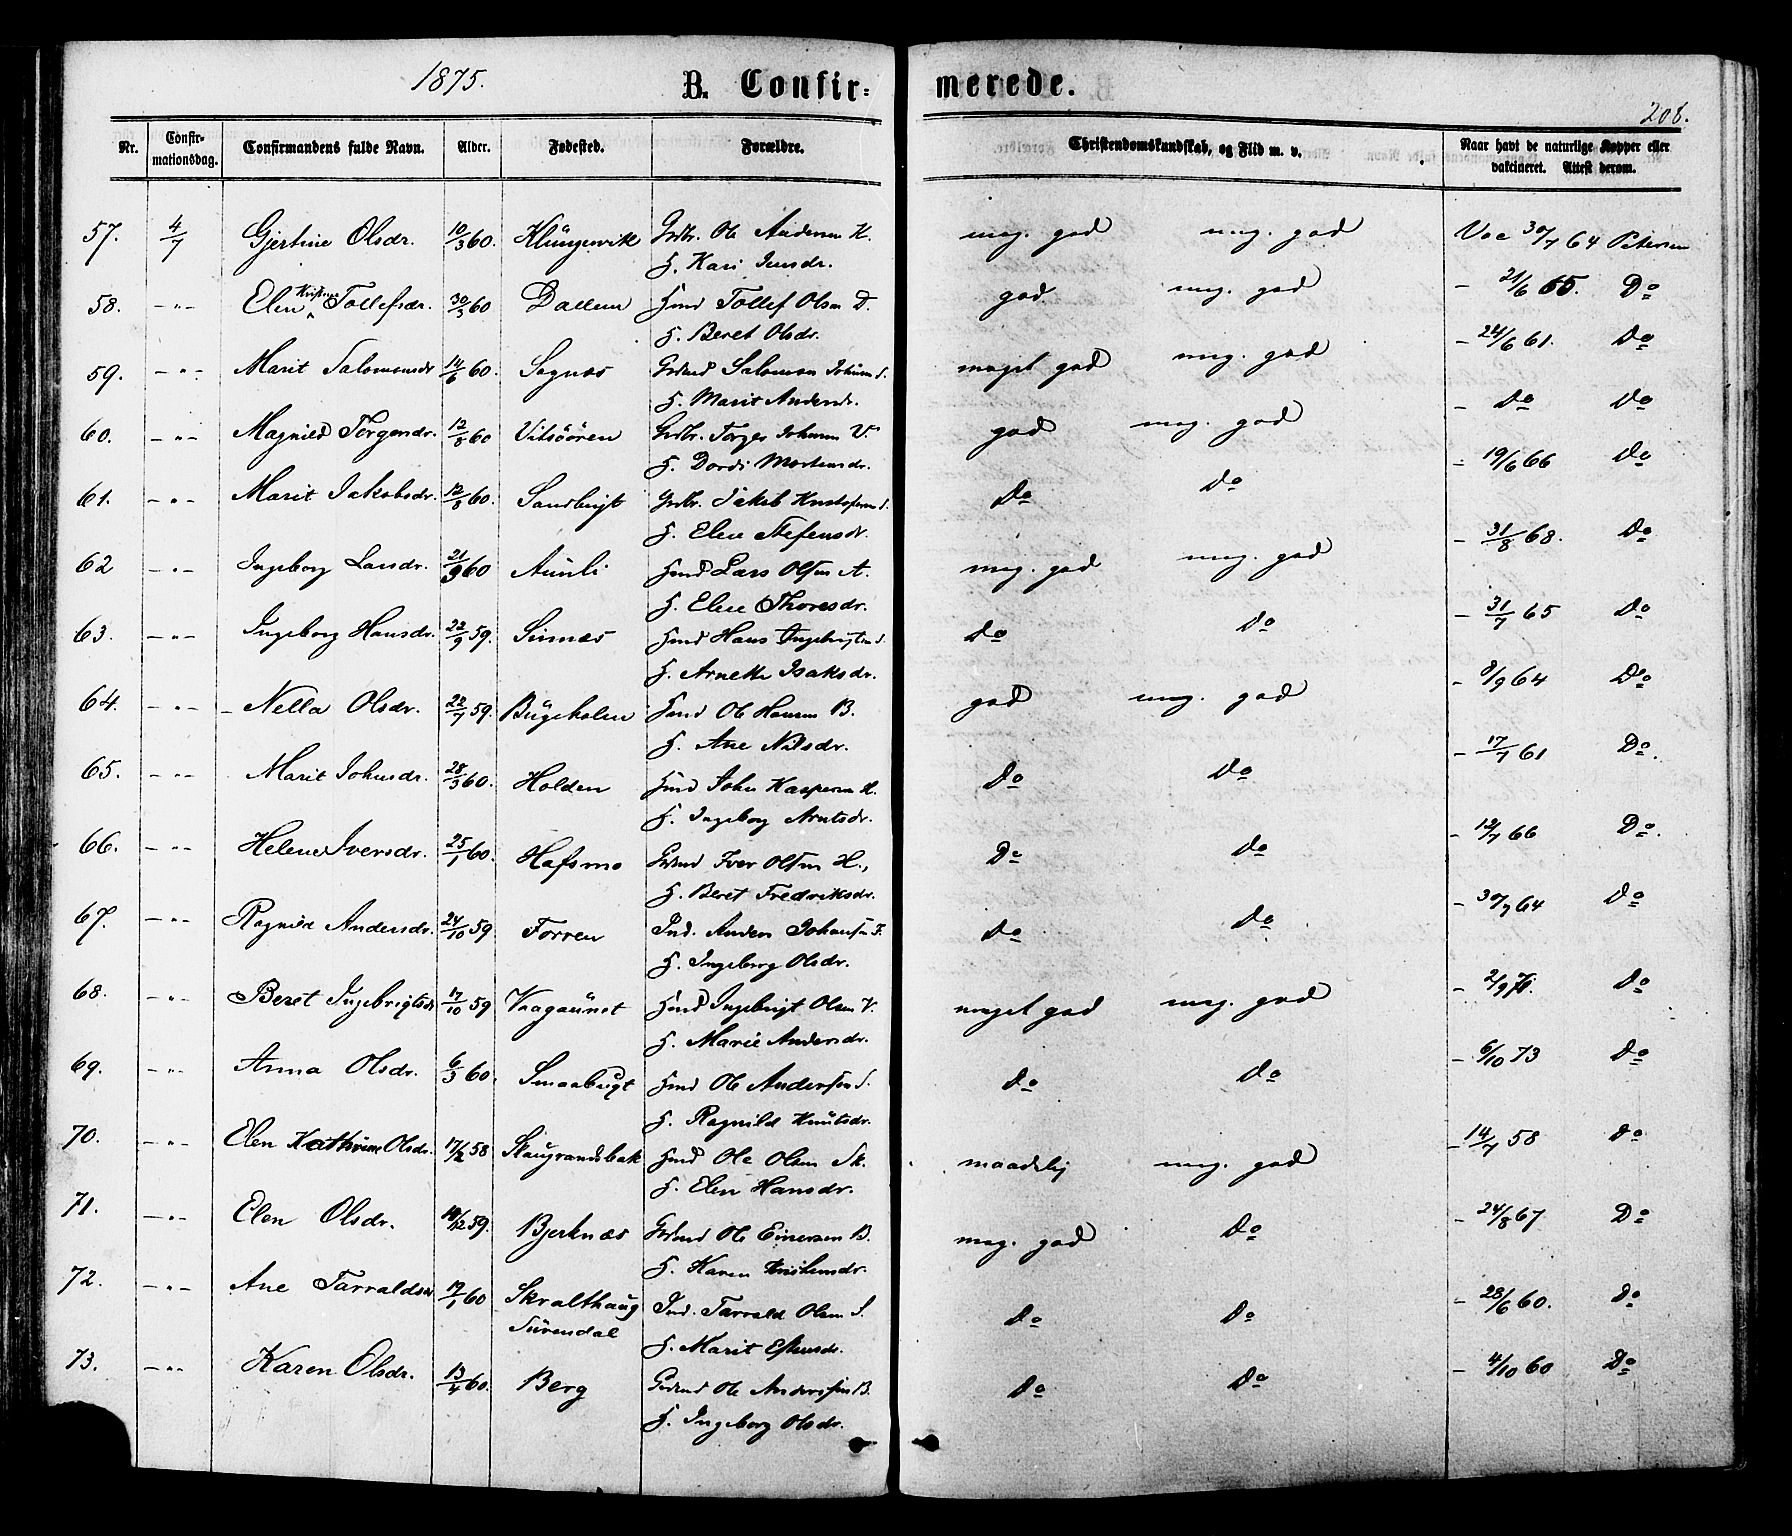 1875.
B. Confir=
merede.
208.
Nr. Confir-mationsdag. Confirmandens fulde Navn. Alder. Fødested. Forældre. Christendomskundskab, og Flid m. v. Naar havt de naturlige Kopper eller vakcineret. Attest derom.
57. 4/7 Gjertine Olsdr. 10/3 60. Klüngervik Grdbr. Ole Andersen K. meg. god meg. god Vac 30/7 64 Petersen
H. Kari Jensdr.
58. -"- Elen Tollefsdr. 30/3 60 Dallem Hmd Tollef Olsen D. god meg. god - 21/6 65. Do
H. Beret Olsdr.
59. -"- Marit Salomonsdr 14/6 60. Sognæs Grdmd Salomon Johnsen S. meget god meg. god - 24/6 61. Do
H. Marit Andersdr.
60. -"- Magnild Torgersdr. 12/8 60 Vitsöören Grdbr. Torger Johnsen V. god meg. god - Do Do
H. Dordi Mortensdr.
61. -"- Marit Jakobsdr. 12/8 60. Sandbugt Grdbr. Jakob Kristofersen S. Do Do - 19/6 66 Do
H. Elen Stefensdr.
62 -"- Ingeborg Larsdr. 21/9 60 Aünli Hmd Lars Olsen A. meg. god meg. god - 31/8 68. Do
H. Elen Thoresdr.
63. -"- Ingeborg Hansdr. 22/9 59. Sinnæs Hmd Hans Ingebrigtsen S. Do Do - 31/7 65 Do
H. Arnette Isaksdr.
64. -"- Nella Olsdr. 22/7 59. Bügeholen Hmd Ole Hansen B. god meg. god - 8/9 64 Do
H. Ane Nilsdr.
65. -"- Marit Johnsdr. 28/3 60. Holden Hmd John Kaspersen H. Do Do - 17/7 61 Do.
H. Ingeborg Arntsdr.
66. -"- Helene Iversdr. 25/1 60. Hafsmo Grdmd Iver Olsen H., Do Do - 12/7 66 Do.
H. Beret Fredriksdr.
67. -"- Ragnild Andersdr. 24/10 59 Forren Ind. Anders Johansen F. Do Do - 30/7 64 Do
H. Ingeborg Olsdr.
68. -"- Beret Ingebrigtsdr 17/10 59 Vaagaünet Hmd Ingebrigt Olsen V. meget god meg. god - 2/9 70. Do
H. Marie Andersdr.
69. -"- Anna Olsdr. 6/3 60. Smaabugt Hmd Ole Andersen S. Do Do - 6/10 73 Do
H. Ragnild Knütsdr.
70. -"- Elen Kathrine Olsdr. 17/12 58 Skaugrandsbak Hmd Ole Olsen Sk. maadelig meg. god - 14/7 58 Do
H. Elen Hansdr.
71. -"- Elen Olsdr. 14/12 59. Bjerknæs Grdmd Ole Einersen B. meg. god Do - 24/8 67 Do
H. Karen
72. -"- Ane Tarraldsdr 19/1 60 Skralthaug Ind. Tarrald Olsen S. Do Do - 28/6 60. Do
Sürendal
H. Marit Estensdr.
73. -"- Karen Olsdr. 13/4 60. Berg Grdmd Ole Andersen B. Do Do - 4/10 60 Do
H. Ingeborg Olsdr.